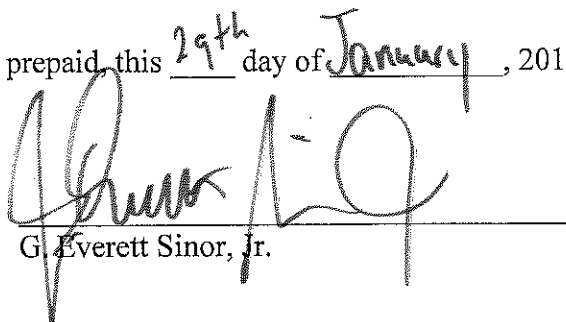 prepaid, this 29th day of January, 201
G. Everett Sinor, Jr.